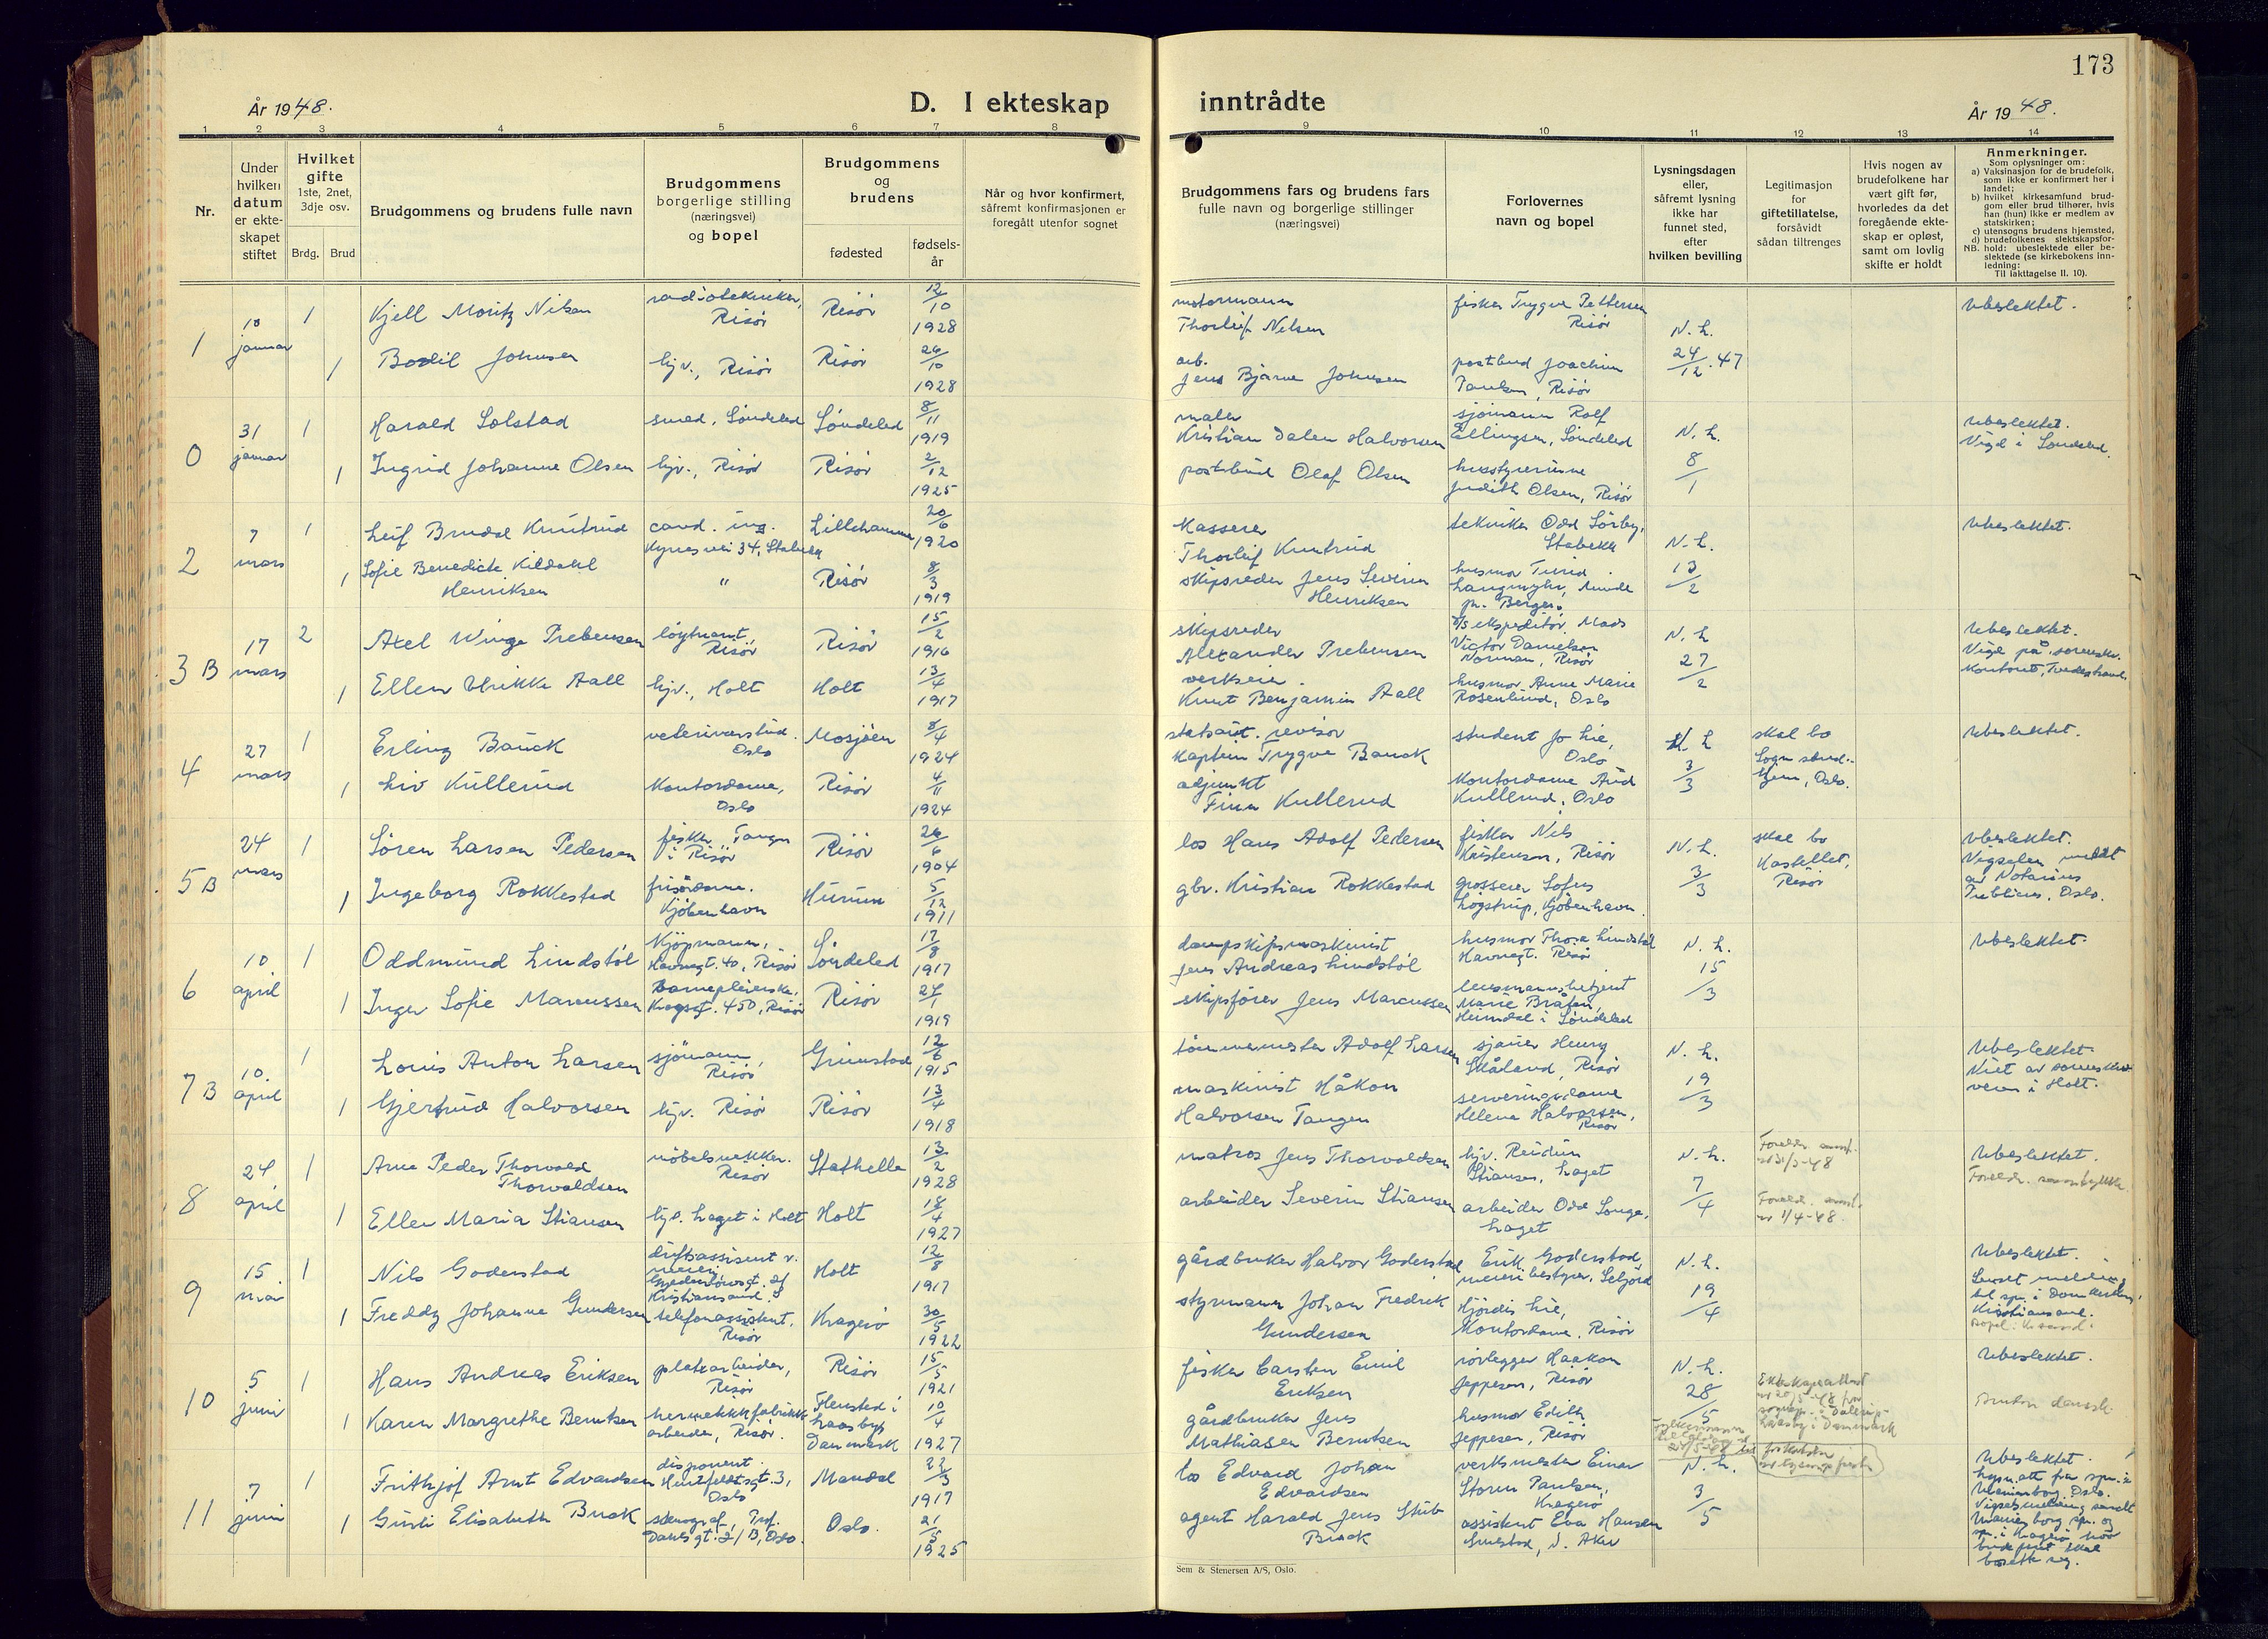 173
År 1948.
D. I ekteskap inntrådte
År 1948.
1 2 3 4 5 6 7 8 9 10 11 12 13 14
Nr.
Under hvilken datum er ekte-skapet stiftet
Hvilket gifte
1ste, 2net, 3dje osv.
Brdg. Brud
Brudgommens og brudens fulle navn
Brudgommens borgerlige stilling (næringsvei) og bopel
Brudgommens og brudens
fødested
fødsels-år
Når og hvor konfirmert, såfremt konfirmasjonen er foregått utenfor sognet
Brudgommens fars og brudens fars fulle navn og borgerlige stillinger (næringsvei)
Forlovernes navn og bopel
Lysningsdagen eller, såfremt lysning ikke har funnet sted, efter hvilken bevilling
Legitimasjon for giftetillatelse, forsåvidt sådan tiltrenges
Hvis nogen av brudefolkene har vært gift før, hvorledes da det foregående ekte-skap er opløst, samt om lovlig skifte er holdt
Anmerkninger.
Som oplysninger om:
a) Vaksinasjon for de brudefolk, som ikke er konfirmert her i landet;
b) hvilket kirkesamfund brud-gom eller brud tilhører, hvis han (hun) ikke er medlem av statskirken;
c) utensogns brudens hjemsted,
d) brudefolkenes slektskapsfor-hold: ubeslektede eller be-slektede (se kirkebokens inn-ledning:
NB.
Til iakttagelse II. 10).
1
10 januar
1
Kjell Moritz Nilsen
radiotekniker, Risör
Risör
12/10 1928
motormann
Thorleif Nilsen
fisker Trygve Pettersen
Risör
N. L.
24/12.47
ubeslektet.
1
Bodil Johnsen
hjv., Risör
Risör
26/10 1928
arb.
Jens Bjarne Johnsen
postbud Joachim
Paulsen, Risör
0
31 januar
1
Harald Solstad
smed, Söndeled
Söndeled
8/11 1919
maler
Kristian Dalen Halvorsen
sjömann Rolf
Ellingsen, Söndeled
N. L.
8/1
ubeslektet.
Vigd i Söndeled.
1
Ingrid Johanne Olsen
hjv., Risör
Risör
2/12 1925
postbud Olaf Olsen
husstyrerinne
Judith Olsen, Risör
2
7 mars
1
Leif Brudal Knutrud
cand. ing.
Kynes vei 34, Stabekk
Lillehammer
20/6 1920
Kasserer
Thorleif Knutrud
tekniker Odd Sörby,
Stabekk
N. L.
13/2
ubeslektet.
1
Sofie Benedicte Kildahl
Henriksen
"
Risör
8/3 1919
skipsreder Jens Severin
Henriksen
husmor Turid
Langmyhr,
pr. Bergen.
3 B
17 mars
2
Axel Winge Prebensen
löytnant, Risör
Risör
15/2 1916
skipsreder
Alexander Prebensen
D/S ekspeditör Mads
Victor Danielsen
Norman, Risör
N. L
27/2
ubeslektet.
Vigd på sorenskr.
kontoret, Tvedestrand
1
Ellen Ulrikke Aall
hjv., Holt
Holt
13/4 1917
verkseier.
Knut Benjamin Aall
husmor Anne Marie
Rosenlund, Oslo
4
27 mars
1
Erling Bauck
veterinærstud.
Oslo
Mosjöen
8/4 1924
statsaut. revisor
kaptein Trygve Bauck
student Jo Lie,
Oslo
N. L
3/3
skal bo
Sogn stud.-
hjem, Oslo.
ubeslektet.
1
Liv Kullerud
Kontordame,
Oslo
Risör
4/11 1924
adjunkt
Finn Kullerud
Kontordame Aud
Kullerud, Oslo
5 B
24 mars
1
Sören Larsen Pedersen
fisker, Tangen
i Risör
Risör
26/6 1904
los Hans Adolf Pedersen
fisker Nils
Kristensen, Risör
N. L.
3/3
skal bo
Kastellet,
Risör
ubeslektet.
Vigselen meldt
av Notarius
Publicus, Oslo.
1
Ingeborg Rokkestad
frisördame.
Kjöbenhavn
Hurum
5/12 1911
gbr. Kristian Rokkestad
grosserer Sofus
Högstrup, Kjöbenhavn.
6
10 april
1
Oddmund Lindstöl
Kjöpmann,
Havnegt. 40, Risör
Söndeled
17/8 1917
dampskipsmaskinist
Jens Andreas Lindstöl
husmor Thora Lindstöl
Havnegt. Risör
N. L.
15/3
ubeslektet.
1
Inger Sofie Marcussen
barnepleierske,
Kragsgt. 450, Risör
Risör
24/1 1919
skipsförer Jens Marcussen
lensmannsbetjent
Marie Bråten,
Heimdal i Söndeled
7 B
10. april
1
Louis Anton Larsen
sjömann,
Risör
Grimstad
12/6 1915
tömmermester Adolf Larsen
sjauer Henry
Skåland, Risör
N. L.
19/3
ubeslektet.
Viet av sorenskri-
veren i Holt.
1
Gjertrud Halvorsen
hjv. Risör
Risör
13/4 1918
maskinist Håkon
Halvorsen Tangen
serveringsdame
Helene Halvorsen,
Risör
8
24 april
1
Arne Peder Thorvald
Thorvaldsen
möbelsnekker.
Risör
Stathelle
13/2 1928
matros Jens Thorvaldsen
hjv. Reidun
Stiansen, Laget
N. L.
7/4
Foreldr. samt.
av 31/3-48
ubeslektet.
Foreldr. samtykke
1
Ellen Maria Stiansen
hjv. Laget i Holt
Holt
18/4 1927
arbeider Severin Stiansen
arbeider Odd Songe,
Laget
Foreld. samt.
av 1/4-48.
9
15 mai
1
Nils Goderstad
driftsassistent v.
meieri
Kristiansand S
Holt
12/8 1917
gårdbruker Halvor Goderstad
Erik Goderstad,
meieribestyrer, Seljord
N. L.
19/4
ubeslektet.
Sendt melding
til spr. i Domkirken,
Kristiansand.
1
Freddy Johanne Gundersen
telefonassistent,
Risör
Kragerö
30/5 1922
styrmann Johan Fredrik
Gundersen
Hjördis Lie,
Kontordame, Risör
10
5 juni
1
Hans Andreas Eriksen
platearbeider,
Risör
Risör
15/5 1921
fisker Carsten Emil
Eriksen
rörlegger Haakon
Jeppesen, Risör
N. L.
28/5
ubeslektet.
Bruden dansk.
1
Karen Margrethe Berntsen
hermetikkfabrikk
arbeider, Risör.
Flensted i
Laasby
Danmark
10/4 1927
gårdbruker Jens
Mathiasen Berntsen
husmor Edith
Jeppesen, Risör
11
7 juni
1
Frithjof Arnt Edvardsen
disponent.
Huitfeldtsgt. 3,
Oslo
Mandal
22/3 1917
los Edvard Johan
Edvardsen
verksmester Einar
Storm Paulsen,
Kragerö
N. L.
3/5
ubeslektet.
lysn.att fra spr. i
Uranienborg, Oslo.
Vigselsmelding sendt
Uranienborg spr. og
spr. i Kragerö, hvor
brudeparet skal
bosette seg.
1
Gurli Elisabeth Buck
stenograf, Prof.
Dahls gt. 21 B, Oslo.
Oslo.
21/5 1925
agent Harald Jens Stub
Buck
assistent Eva Hansen
Grestad, V. Aker
Sem & Stenersen A/S, Oslo.